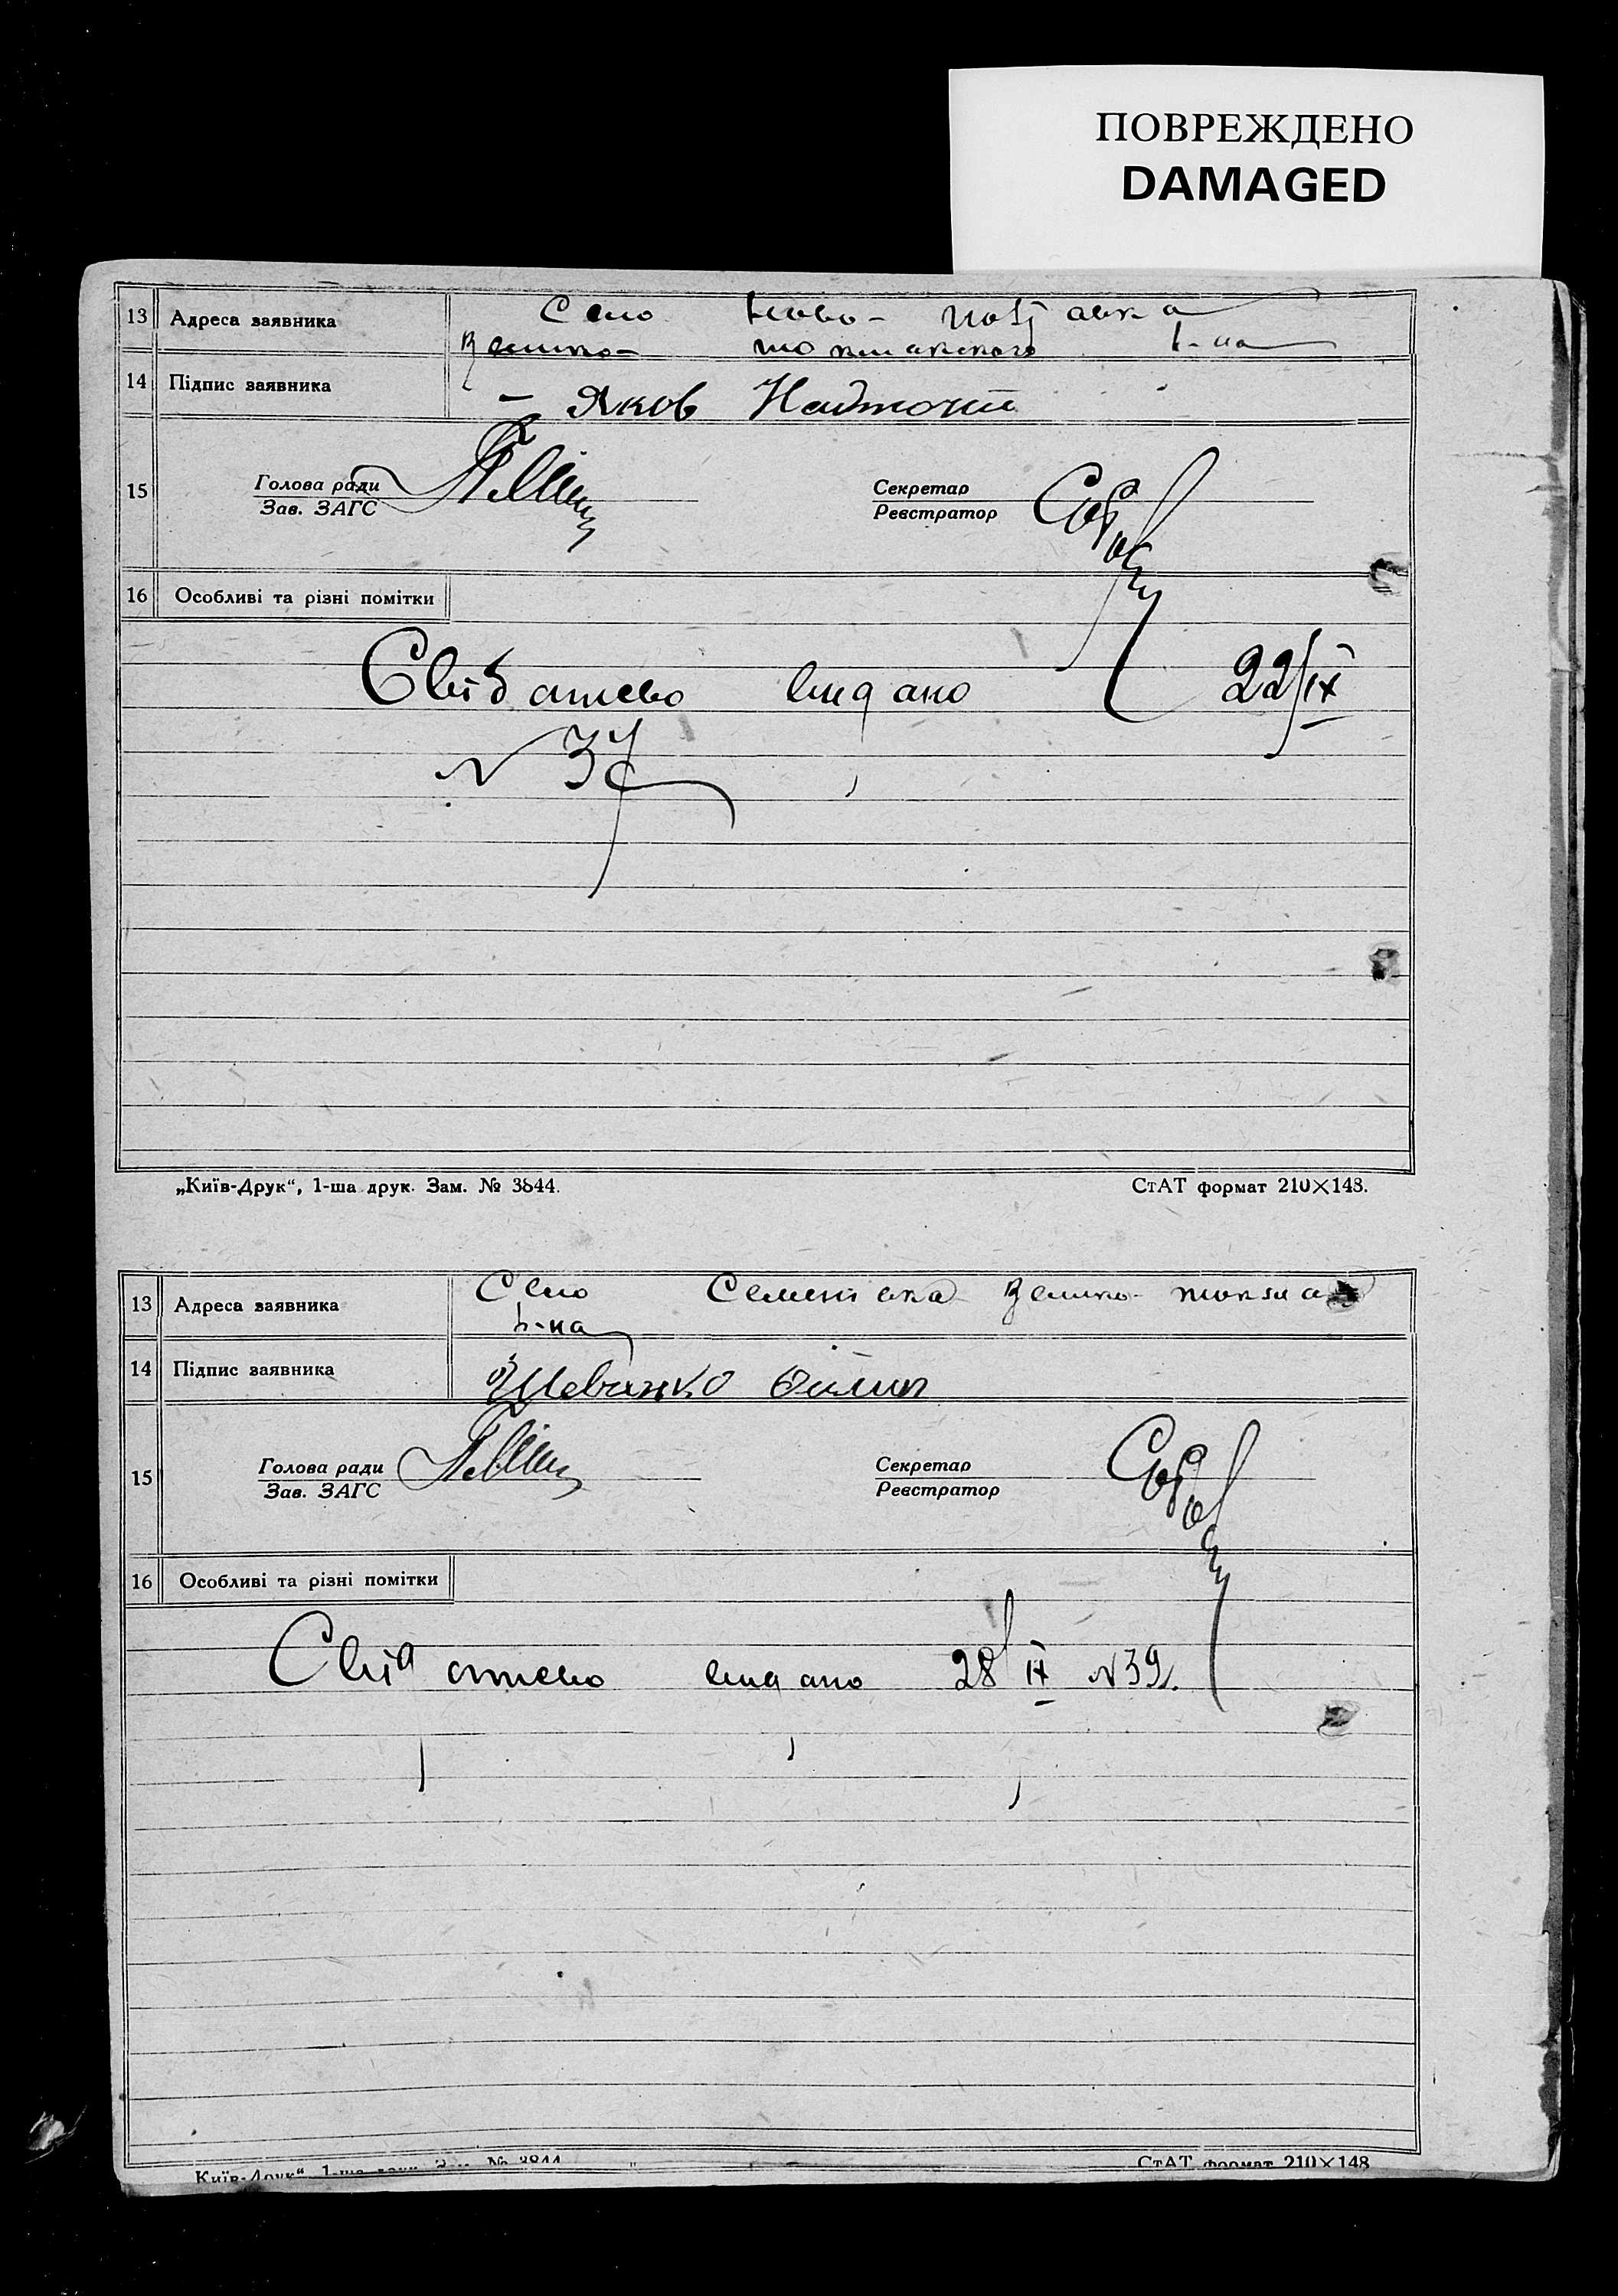 ПОВРЕЖДЕНО
DAMAGED
13 Адреса заявника Село Ново-
Велико- токмакского р-на
14 Підпис заявника Яков Надточий
15 Голова ради Секретар
Зав. ЗАГС Реєстратор
16 Особливі та різні помітки
Свідотство видано 22/IX
№ 37
„Київ-Друк“, 1-ша друк. Зам. № 3844. СтАТ формат 210×148.
13 Адреса заявника Село Семенівка Велико- токма
р-на
14 Підпис заявника
15 Голова ради Секретар
Зав. ЗАГС Реєстратор
16 Особливі та різні помітки
Свідотство видано 28/IX №39.
Київ-Друк“, 1-ша друк. Зам. № 3844 СтАТ формат 210×148